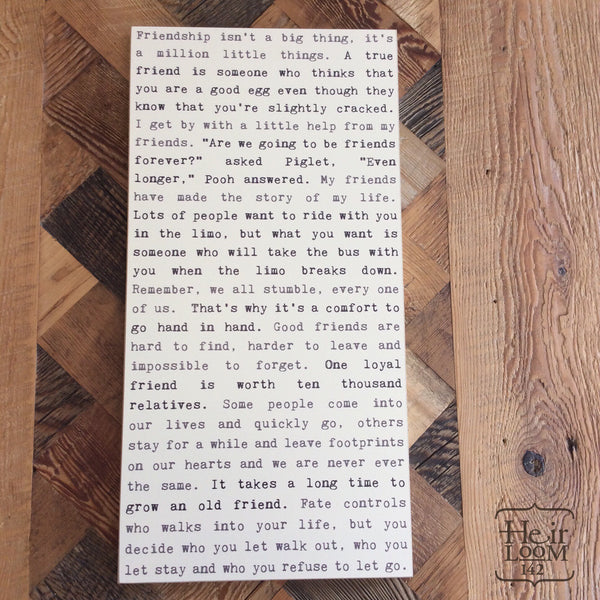 Friendship isn't a big thing, it's
a million little things. A true
friend is someone who thinks that
you are a good egg even though they
know that you're slightly cracked.
I get by with a little help from my
friends. "Are we going to be friends
forever?" asked Piglet, "Even
longer," Pooh answered. My friends
have made the story of my life.
Lots of people want to ride with you
in the limo, but what you want is
someone who will take the bus with
you when the limo breaks down.
Remember, we all stumble, every one
of us. That's why it's a comfort to
go hand in hand. Good friends are
hard to find, harder to leave and
impossible to forget. One loyal
friend is worth ten thousand
relatives. Some people come into
our lives and quickly go, others
stay for a while and leave footprints
on our hearts and we are never ever
the same. It takes a long time to
grow an old friend. Fate controls
who walks into your life, but you
decide who you let walk out, who you
let stay and who you refuse to let go.
Heir
LOOM
142